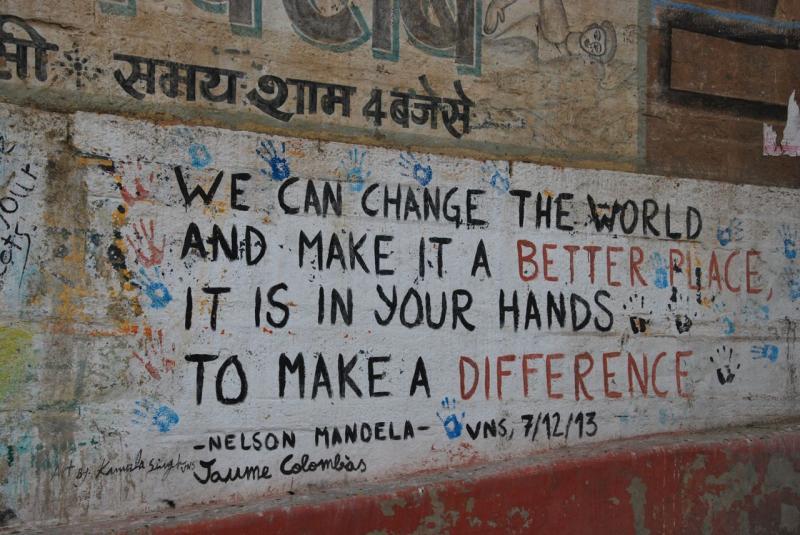 समय शाम 4 बजे से
WE CAN CHANGE THE WORLD
AND MAKE IT A BETTER PLACE,
IT IS IN YOUR HANDS
TO MAKE A DIFFERENCE
-NELSON MANDELA- VNS, 7/12/13
Jaume Colombàs